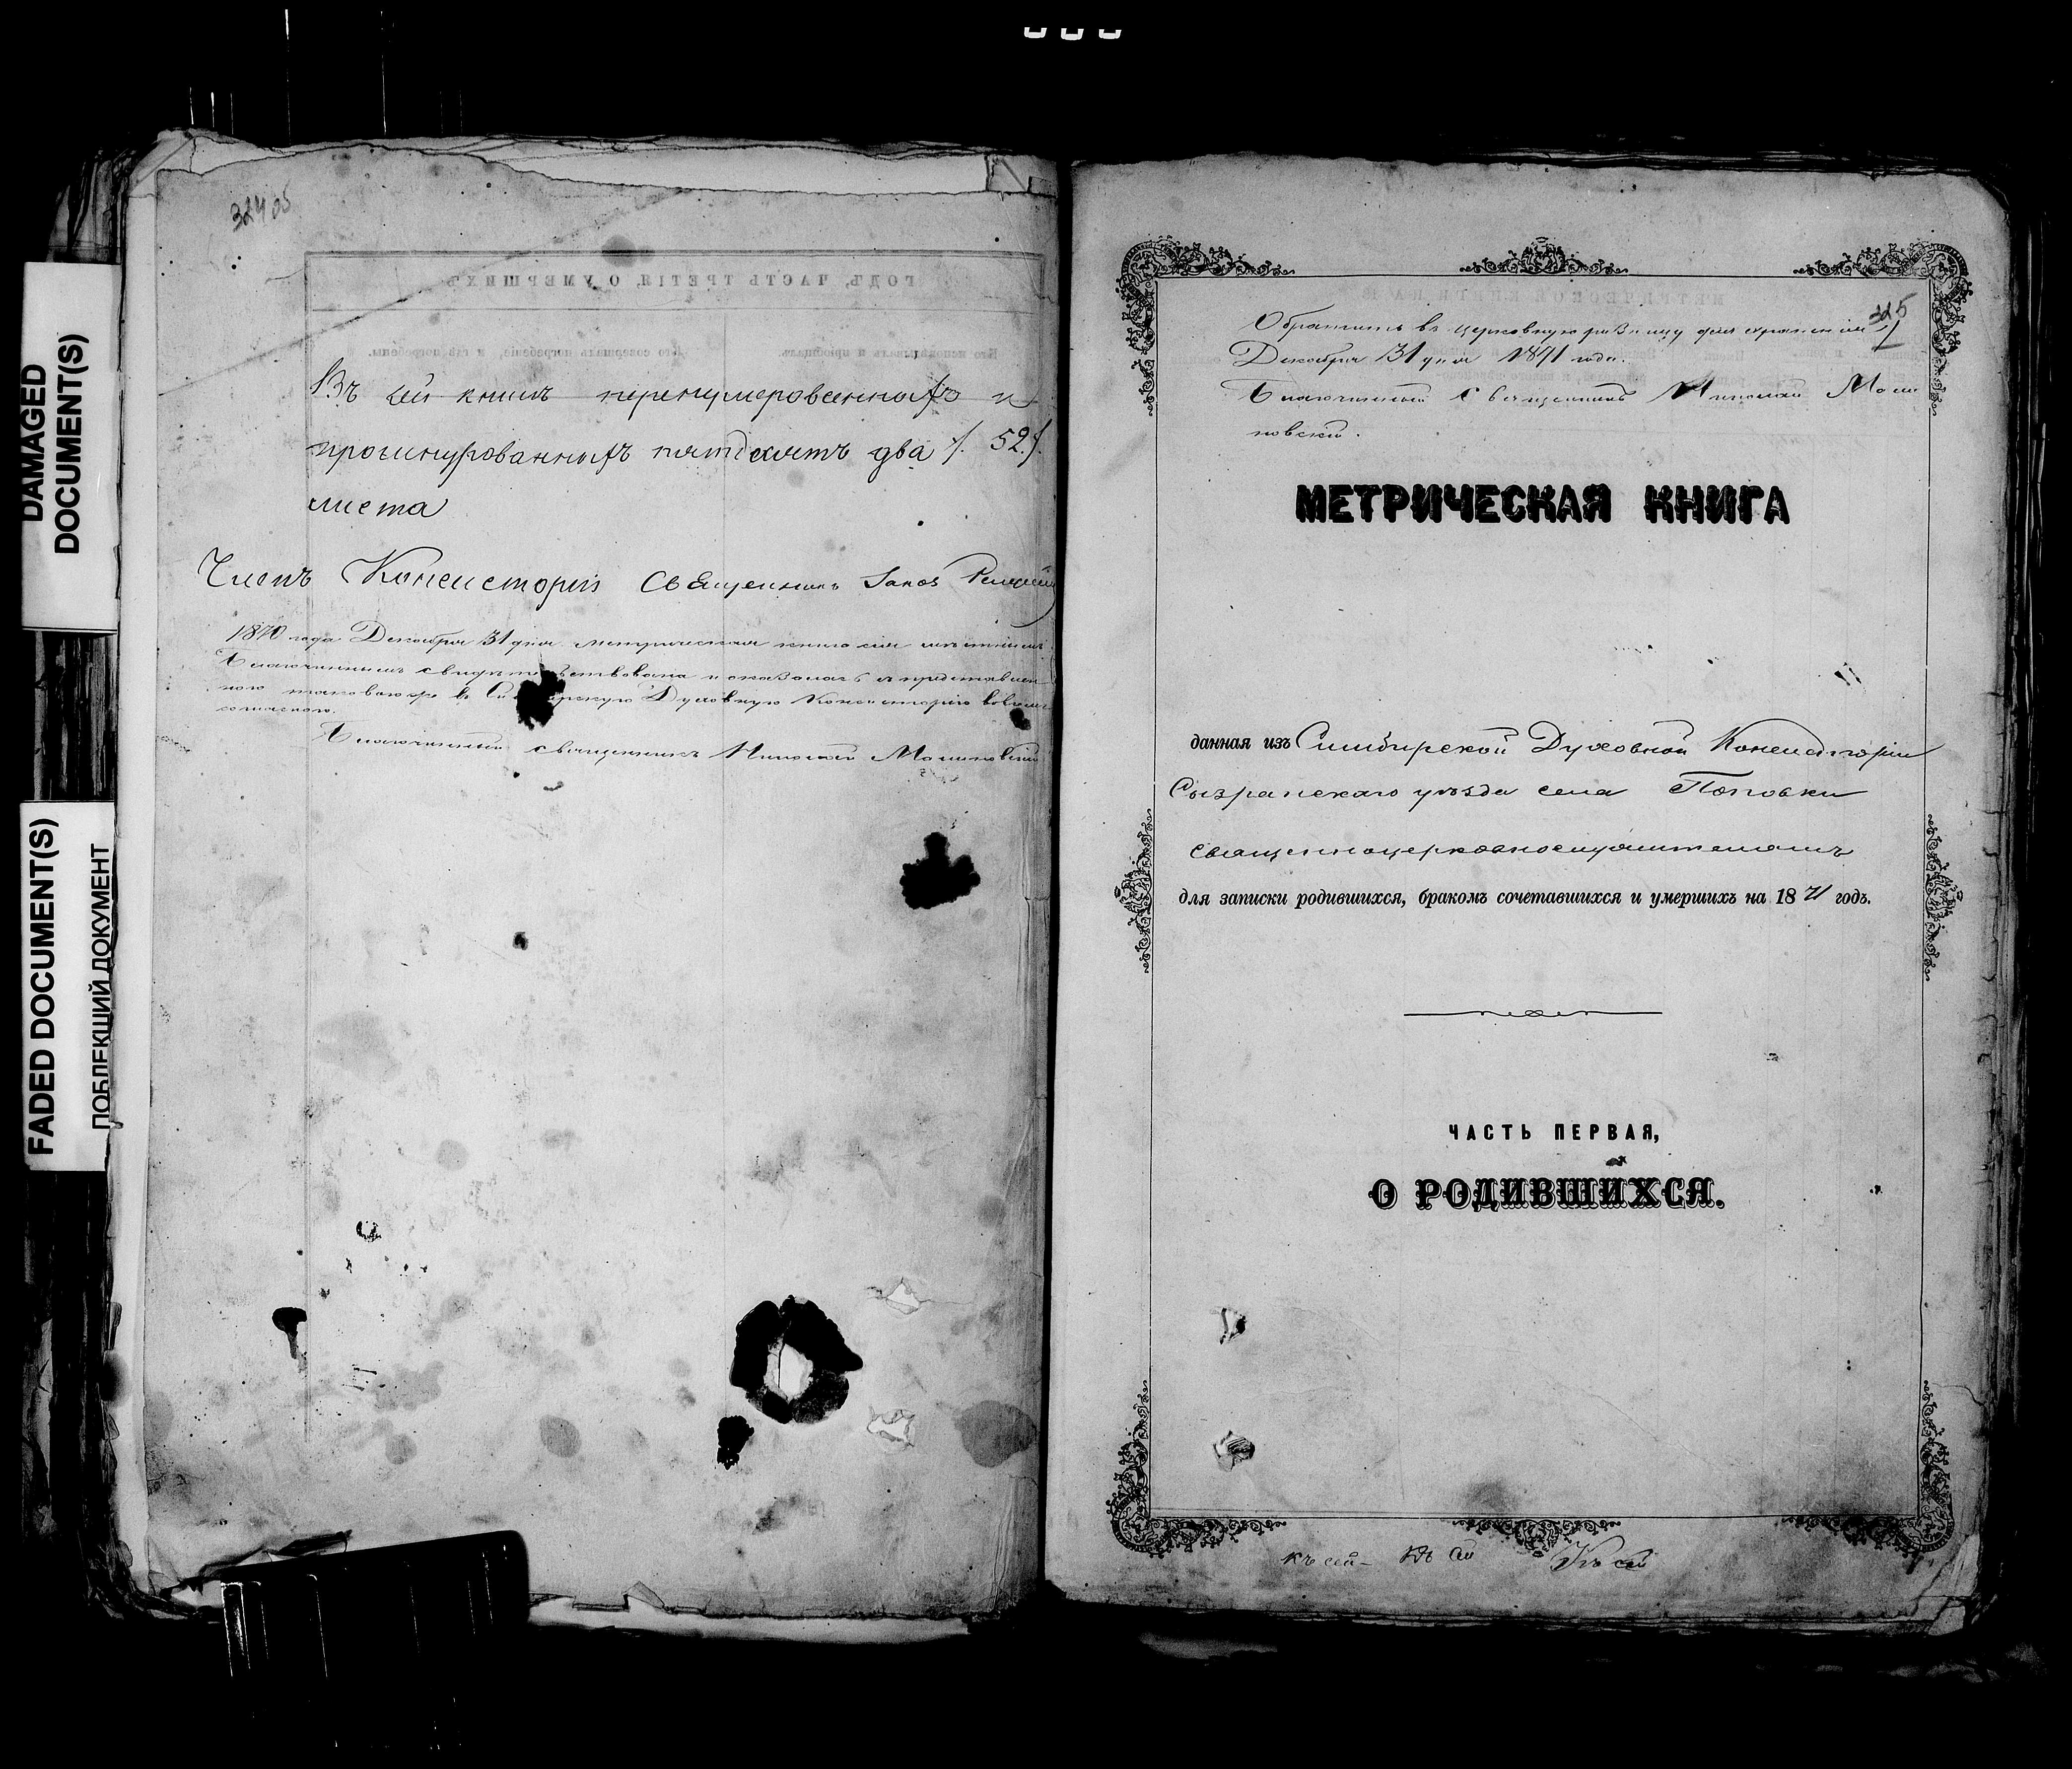 DAMAGED
DOCUMENT(S)
FADED DOCUMENT(S)
ПОБЛЕКШИЙ ДОКУМЕНТ
324 об
ГОДЪ, ЧАСТЬ ТРЕТІЯ, О УМЕРШИХЪ
Въ сей книгѣ перенумерованныхъ и
прошнурованныхъ пятдесятъ два /. 52 /.
листа
Членъ Консисторіи Священникъ
1870 года Декабря 31 дня метрическая книга сія мѣстнымъ
Благочиннымъ свидѣтельствована и оказалась съ представлен
ною таковою же въ Симбирскую Духовную Консисторію во всемъ
согласною.
Благочинный священникъ Николай
325
Обратить въ церковную ризницу для храненія
Декабря 31 дня 1871 года.
Благочинный Священникъ Николай
МЕТРИЧЕСКАЯ КНИГА
данная изъ Симбирской Духовной Консисторіи
Сызранскаго уѣзда села Поповки
священноцерковнослужителямъ
для записки родившихся, бракомъ сочетавшихся и умершихъ на 1871 годъ.
ЧАСТЬ ПЕРВАЯ,
О РОДИВШИХСЯ.
къ сей- Къ сей Къ сей